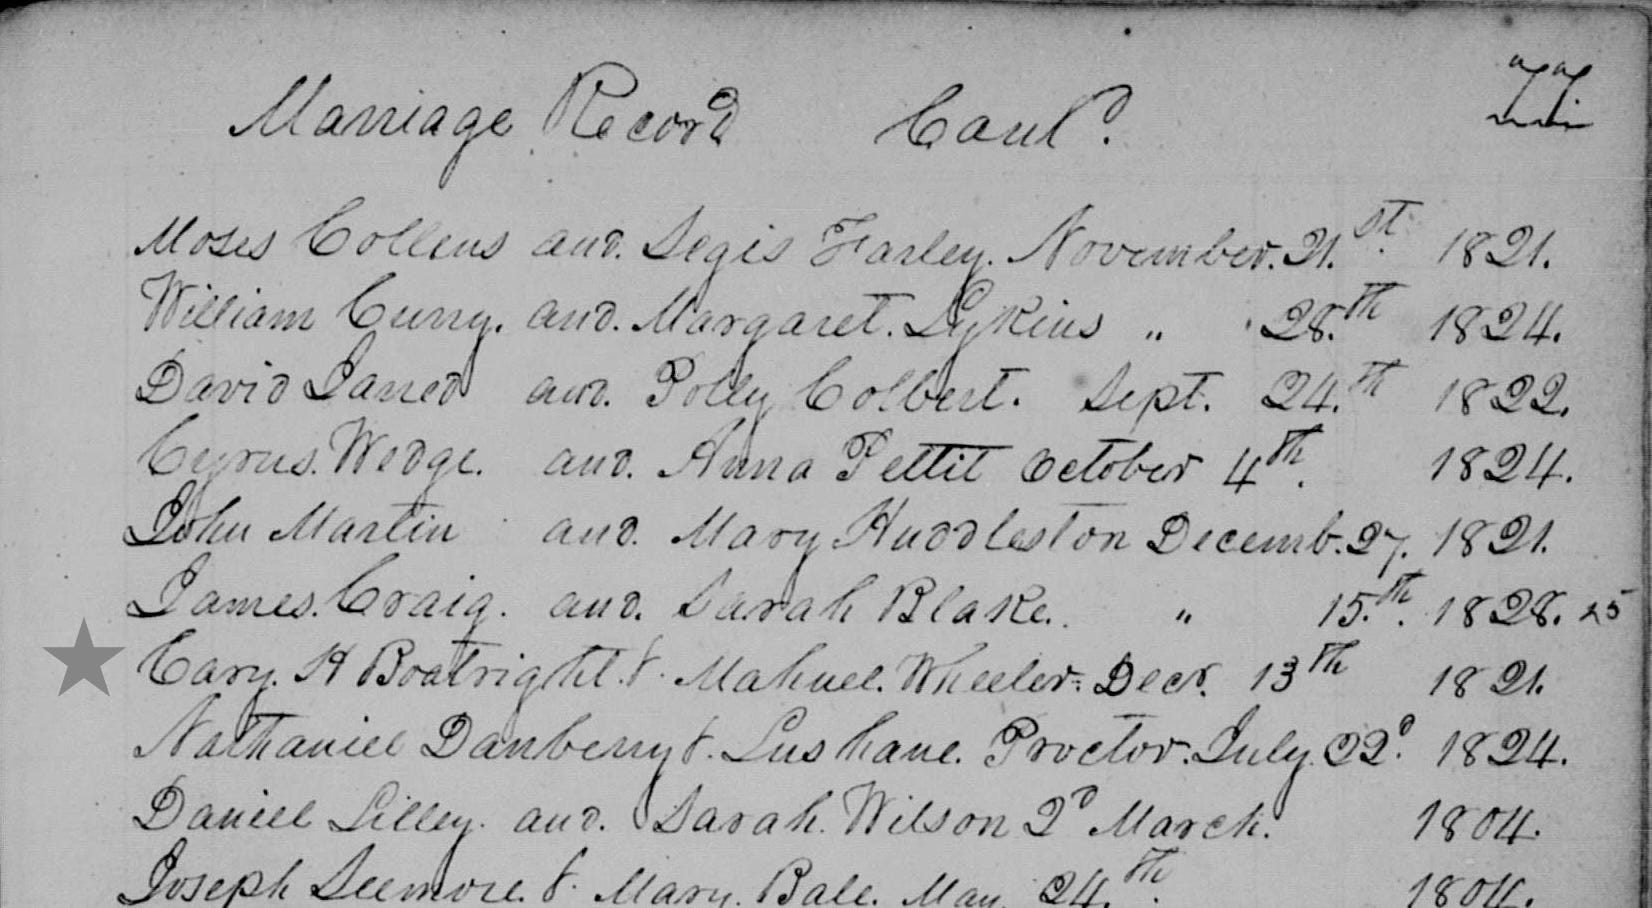 77
Marriage Record Conl'd.
Moses Collens and. Segis Farley. November. 21.st 1821.
William Curry. and. Margaret. Lykins " 28.th 1824.
David Jarred and. Polly Colbert. Sept. 24.th 1822.
Cyrus. Wedge. and. Anna Pettit October 4th. 1824.
John Martin and. Mary Huddleston Decemb. 27. 1821.
James. Craig. and. Sarah Blake. " 15.th. 1828. 25
Cary. H Boatright. &. Mahuel. Wheeler. Decr. 13th 1821.
Nathaniel Danberry &. Lushane. Proctor. July. 22d. 1824.
Daniel Lilley. and. Sarah. Wilson 2d March. 1804.
Joseph Seemore. &. Mary. Bale. May. 24.th. 1804.